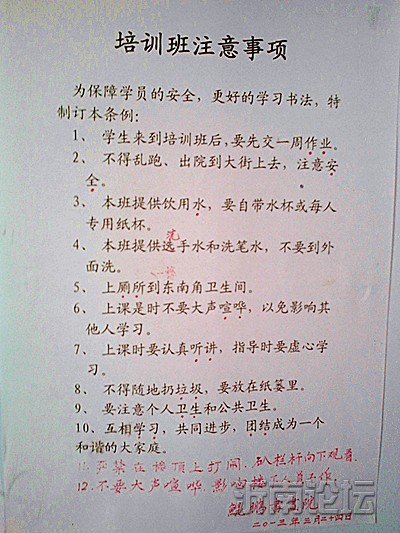 培训班注意事项
为保障学员的安全，更好的学习书法，特
制订本条例：
1、 学生来到培训班后，要先交一周作业。
2、 不得乱跑、出院到大街上去，注意安
全。
3、 本班提供饮用水，要自带水杯或每人
专用纸杯。
洗
4、 本班提供选手水和洗笔水，不要到外
面洗。
一楼
5、 上厕所到东南角卫生间。
6、 上课是时不要大声喧哗，以免影响其
他人学习。
7、 上课时要认真听讲，指导时要虚心学
习。
8、 不得随地扔垃圾，要放在纸篓里。
9、 要注意个人卫生和公共卫生。
10、互相学习，共同进步，团结成为一个
和谐的大家庭。
11.严禁在楼顶上打闹，趴栏杆向下观看
12.不要大声喧哗.影响楼下人员不便
鲲鹏书画院
二〇一三年三月二十四日
沂南论坛